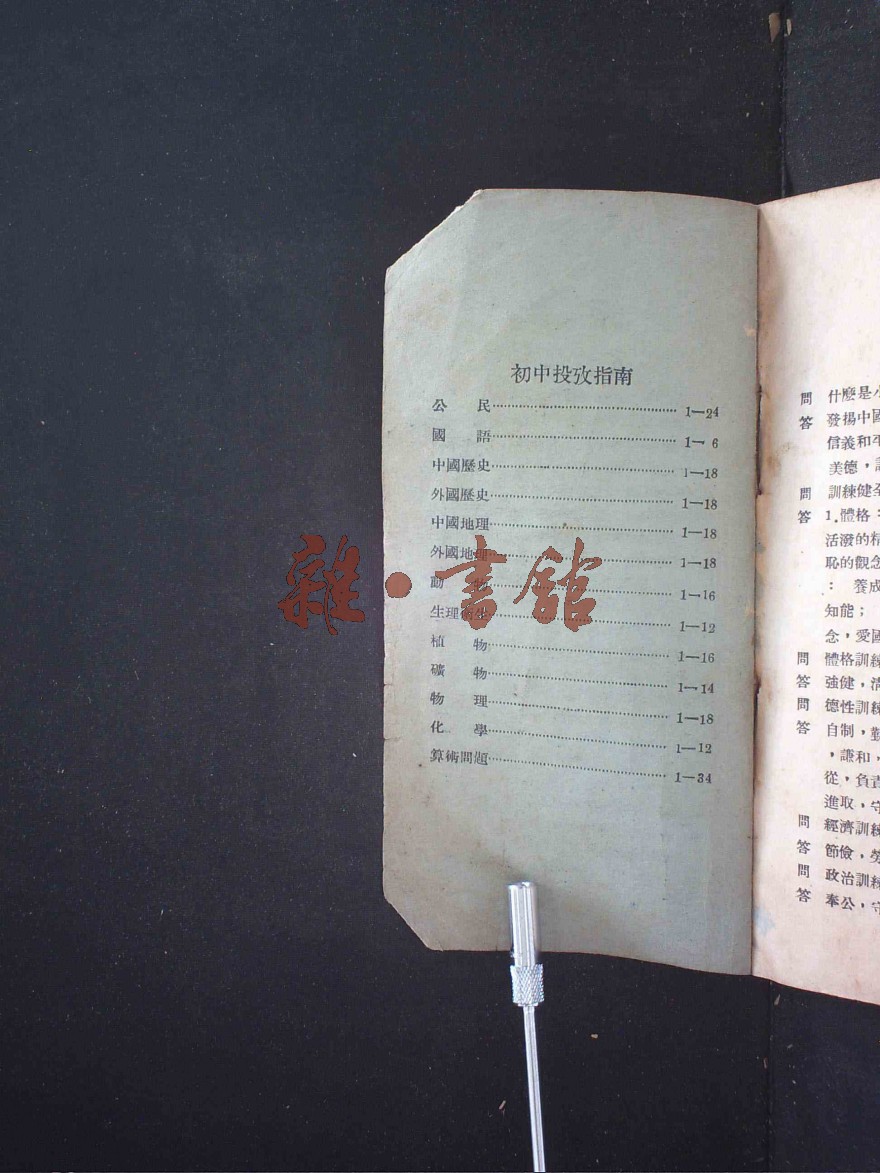 初中投攷指南
公　民 1—24
國　語 1—6
中國歷史 1—18
外國歷史 1—18
中國地理 1—18
外國地理 1—18
動　物 1—16
生理衛生 1—12
植　物 1—16
礦　物 1—14
物　理 1—18
化　學 1—12
算術問題 1—34
雜·書館
問 什麼是小
答 發揚中國
信義和平
美德，
問 訓練健全
答 1.體格：
活潑的精
恥的觀念
： 養成
知能；
念，愛國
問 體格訓練
答 強健，清
問 德性訓練
答 自制，勤
，謙和，
從，負責
進取，守
問 經濟訓練
答 節儉，勞
問 政治訓練
答 奉公，守